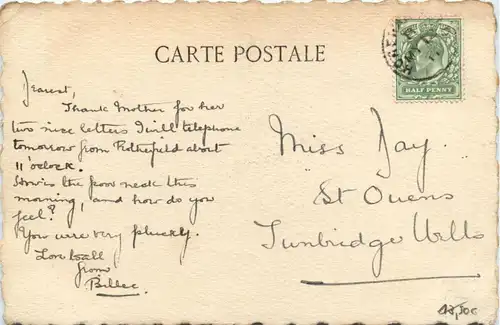 CARTE POSTALE
HALF PENNY
Dearest,
Thank Mother for her
two nice letters I will telephone
tomorrow from Rotherfield about
11 o'clock.
How's the poor neck this
morning, and how do you
feel?
You were very plucky.
from
Miss Jay.
St Ouens
Tunbridge Wells